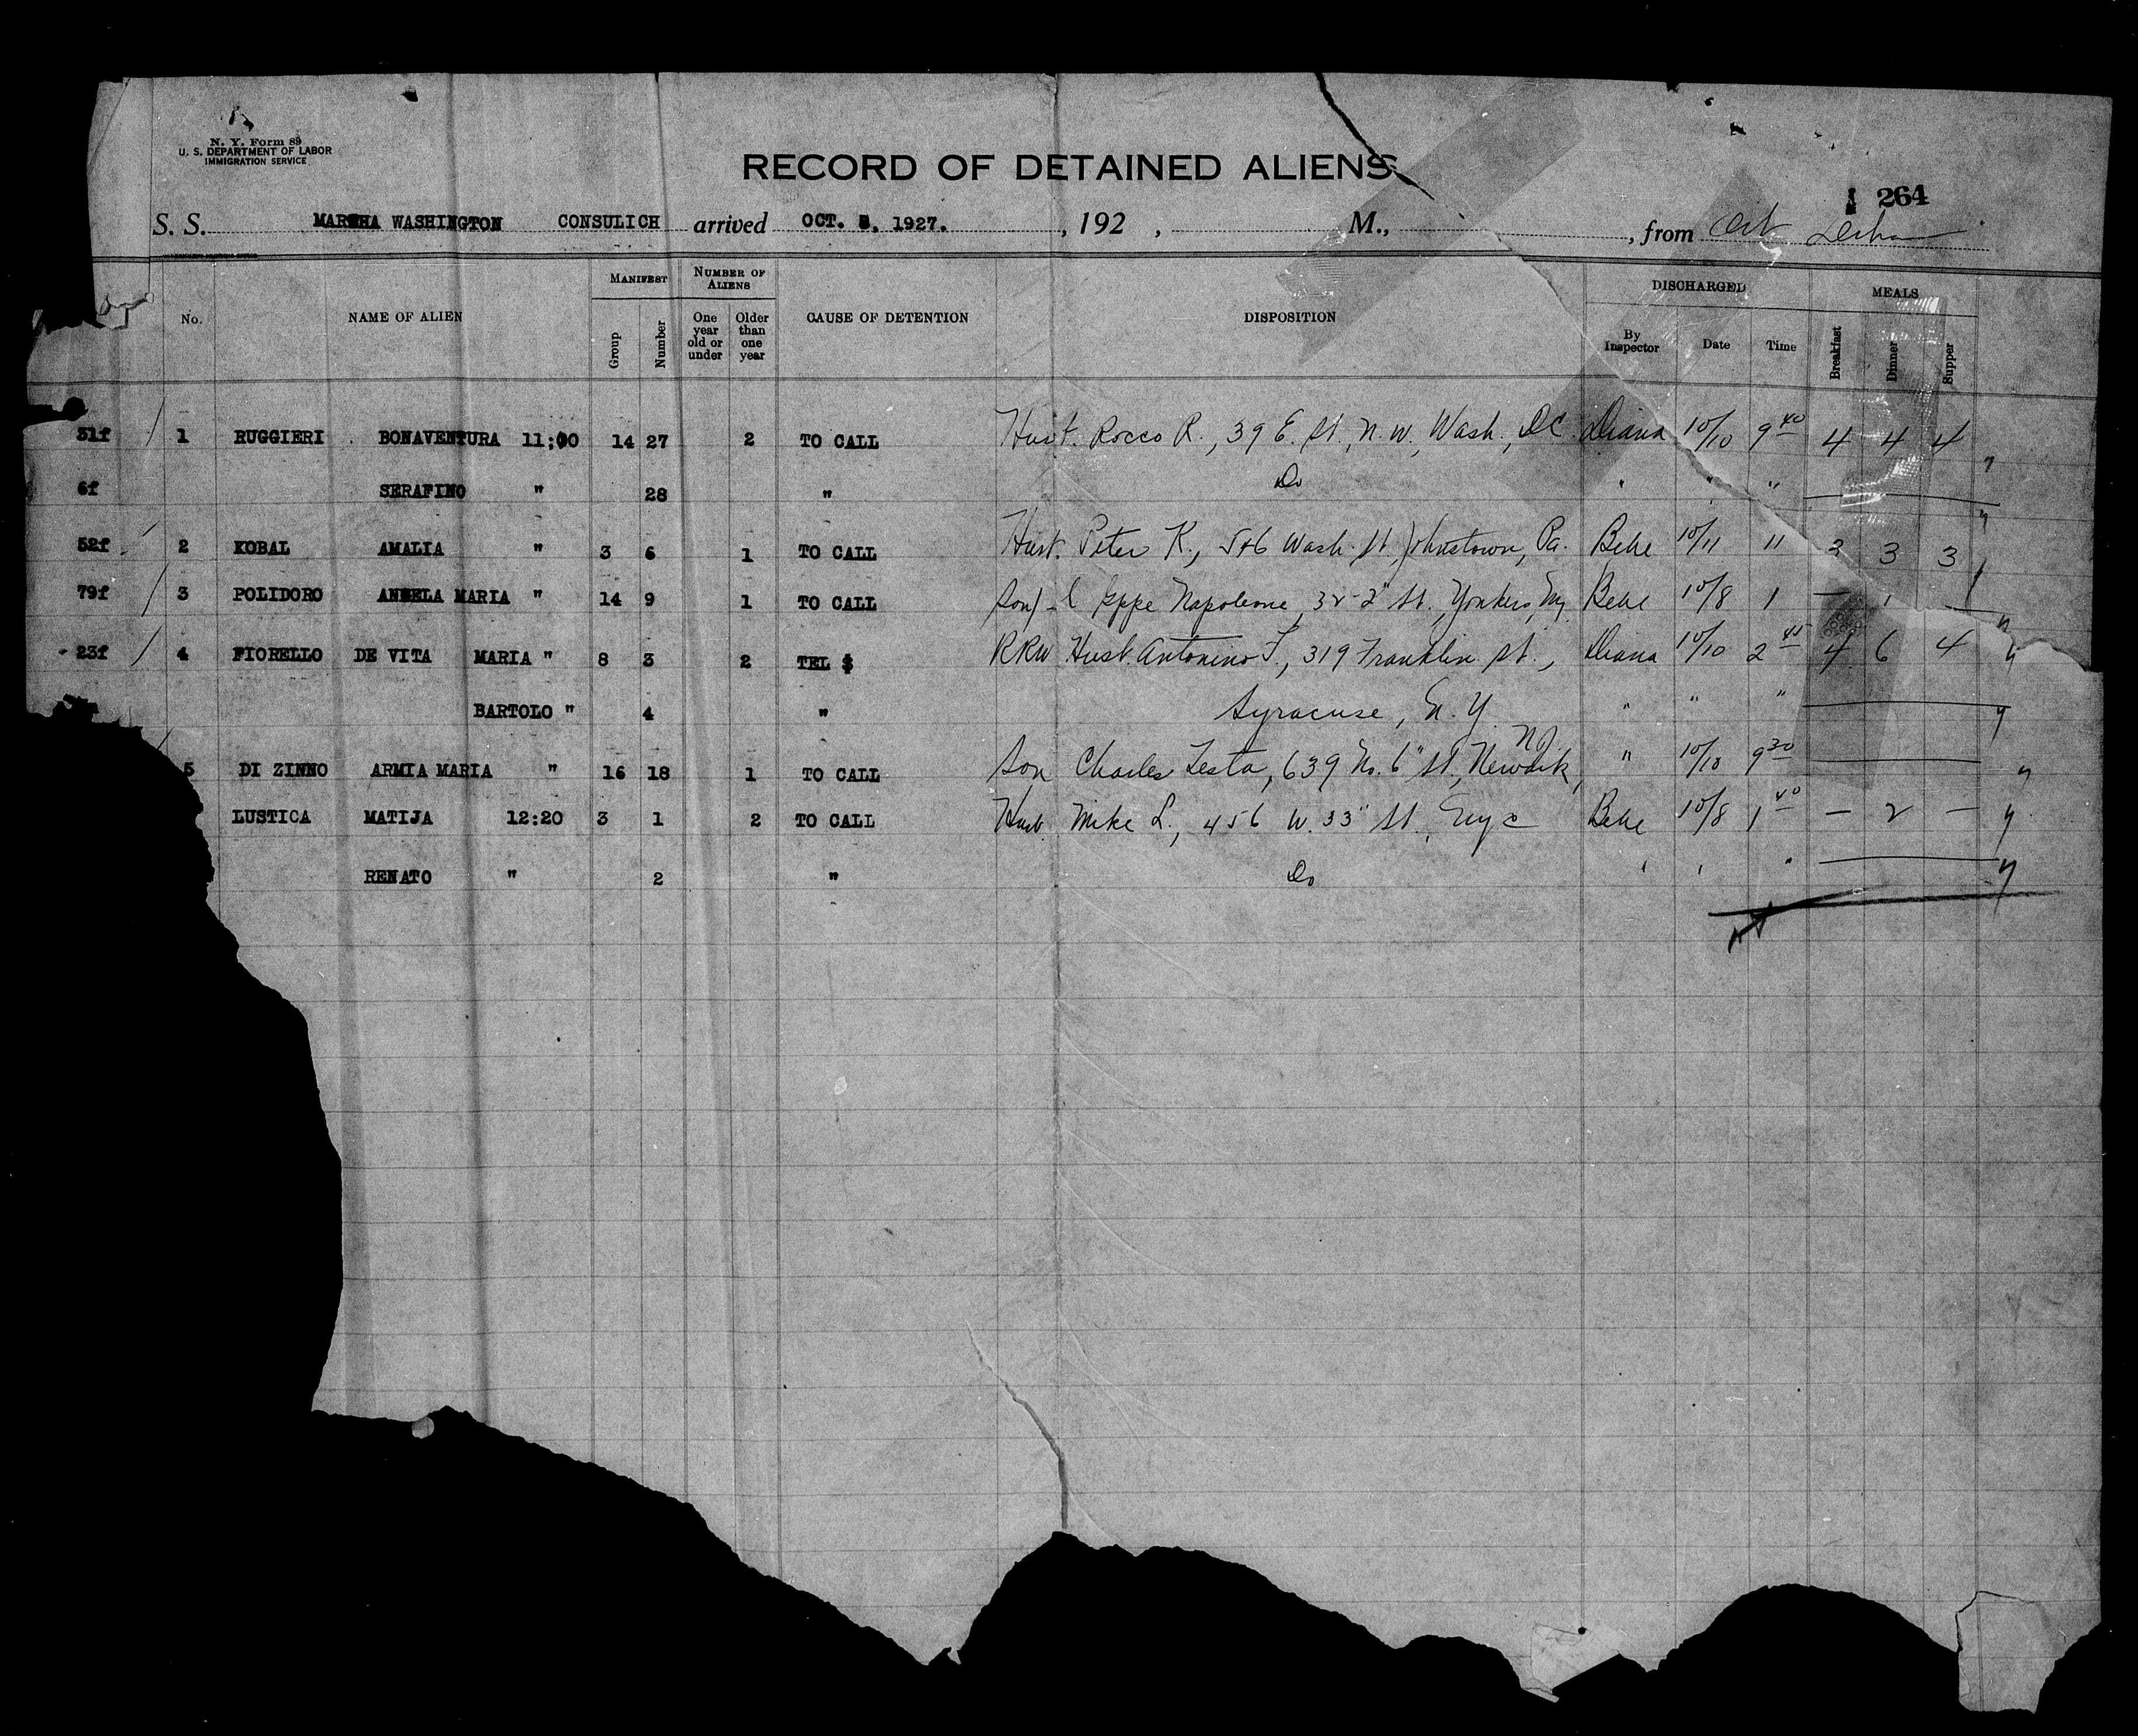 N. Y. Form 89
U. S. DEPARTMENT OF LABOR
IMMIGRATION SERVICE
RECORD OF DETAINED ALIENS
264
S. S. MARTHA WASHINGTON CONSULICH arrived OCT. 1927. , 192 , M., , from
MANIFEST NUMBER OF ALIENS DISCHARGED MEALS
No. NAME OF ALIEN Group Number One year old or under Older than one year CAUSE OF DETENTION DISPOSITION By Inspector Date Time Breakfast Dinner Supper
31f / 1 RUGGIERI BONAVENTURA 11:00 14 27 2 TO CALL Husb. Rocco R., 39 E. St., N.W., Wash., DC Diana 10/10 9 40 4 4 4
6f SERAFINO " 28 " Do " " "
52f / 2 KOBAL AMALIA " 3 6 1 TO CALL Husb. Peter K., Wash. St. Johnstown, Pa. Behe 10/11 11 3 3 3
79f / 3 POLIDORO ANGELA MARIA " 14 9 1 TO CALL Napoleone, 32-2" St., Yonkers, NY Behe 10/8 1 — 1 —
23f / 4 FIORELLO DE VITA MARIA " 8 3 2 TEL $ RRW Husb. Antonino F., 319 Franklin St., Diana 10/10 2 45 4 6 4
BARTOLO " 4 " Syracuse, N.Y. " " "
5 DI ZINNO ARMIA MARIA " 16 18 1 TO CALL Son Charles Testa, 639 No. 6" St., Newark, NJ. " 10/10 9 30
LUSTICA MATIJA 12:20 3 1 2 TO CALL Husb. Mike L., 456 W. 33" St. NYC Behe 10/8 1 40 — 2 —
RENATO " 2 " Do " " "